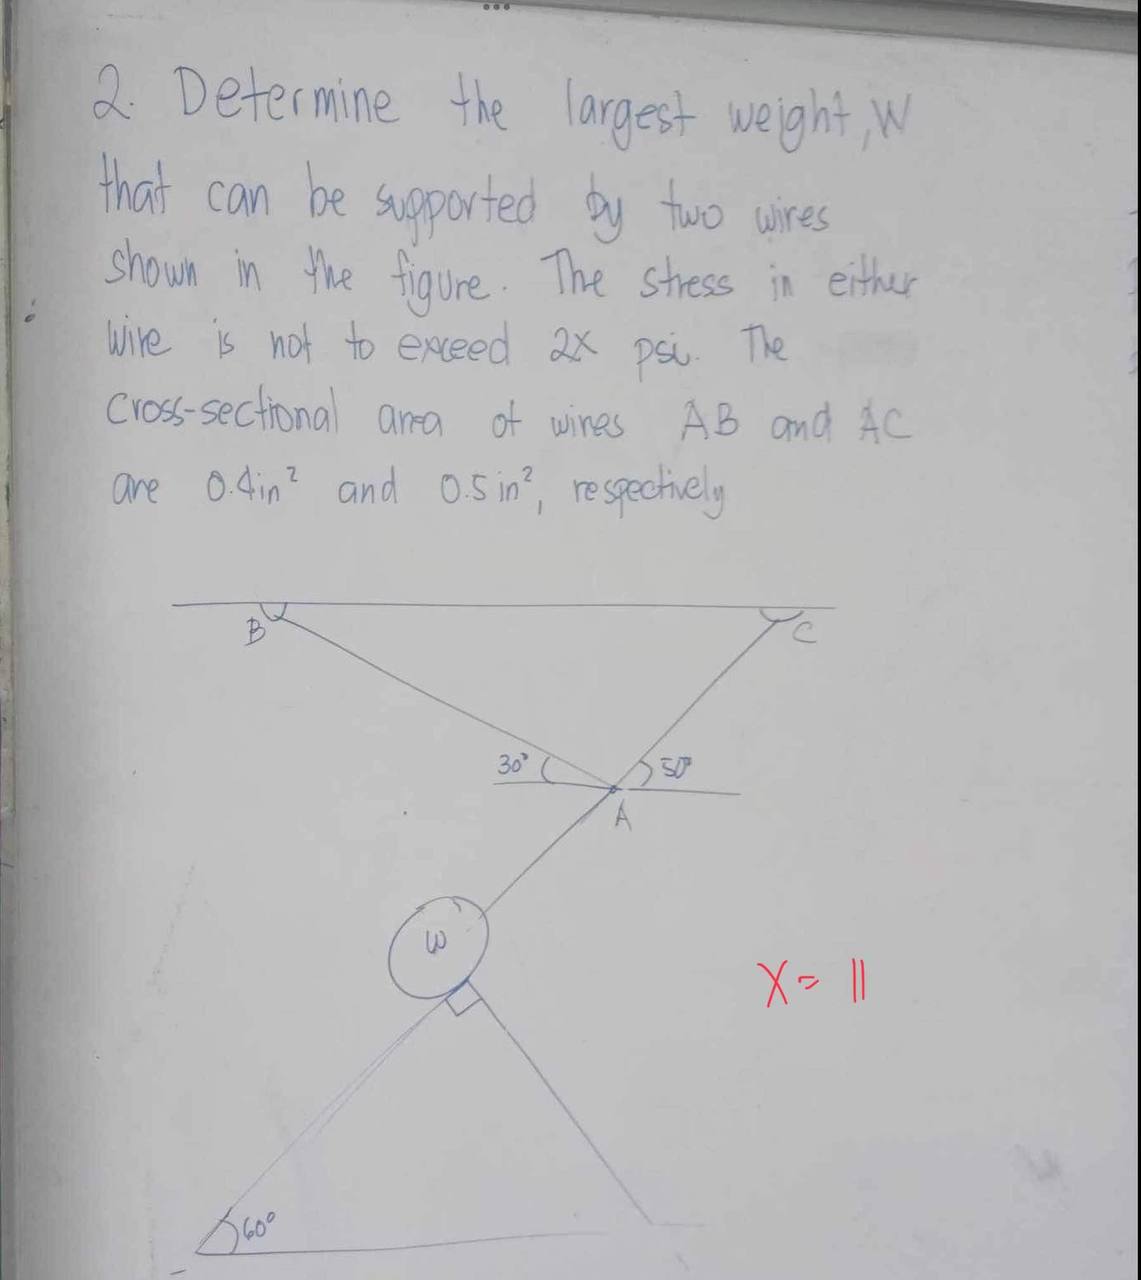 2. Determine the largest weight, W
that can be supported by two wires
shown in the figure. The stress in either
wire is not to exceed 2x psi. The
cross-sectional area of wires AB and AC
are 0.4in² and 0.5in², respectively
B
C
30°
50°
A
W
X = 11
60°